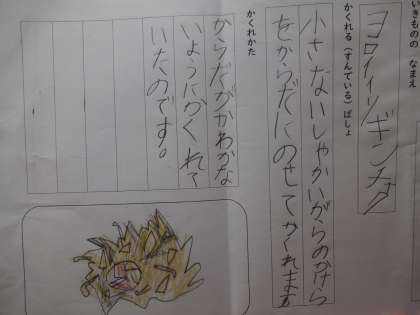 いきものの なまえ
ヨロイイソギンチャク
かくれる（すんでいる）ばしょ
小さないしやかいがらのかけら
をからだにのせてかくれます
かくれかた
からだがかわかな
いようにかくれて
いたのです。